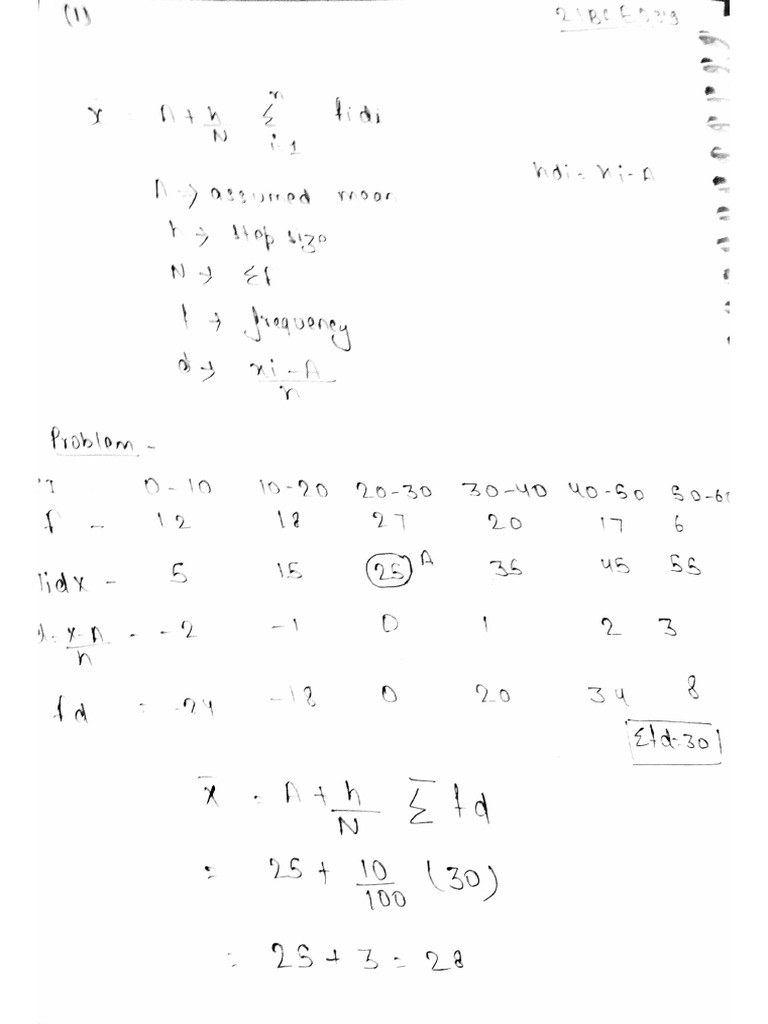 (1)
x̄ = A + h/N Σ i=1 n fidi
hdi = xi - A
A → assumed mean
h → step size
N → Σf
f → frequency
d → xi - A / h
Problem -
0-10 10-20 20-30 30-40 40-50 50-60
f - 12 18 27 20 17 6
midx - 5 15 25 A 35 45 55
d = x-A/h - -2 -1 0 1 2 3
fd = -24 -18 0 20 34 8
Σfd=30
x̄ = A + h/N Σfd
= 25 + 10/100 (30)
= 25 + 3 = 28